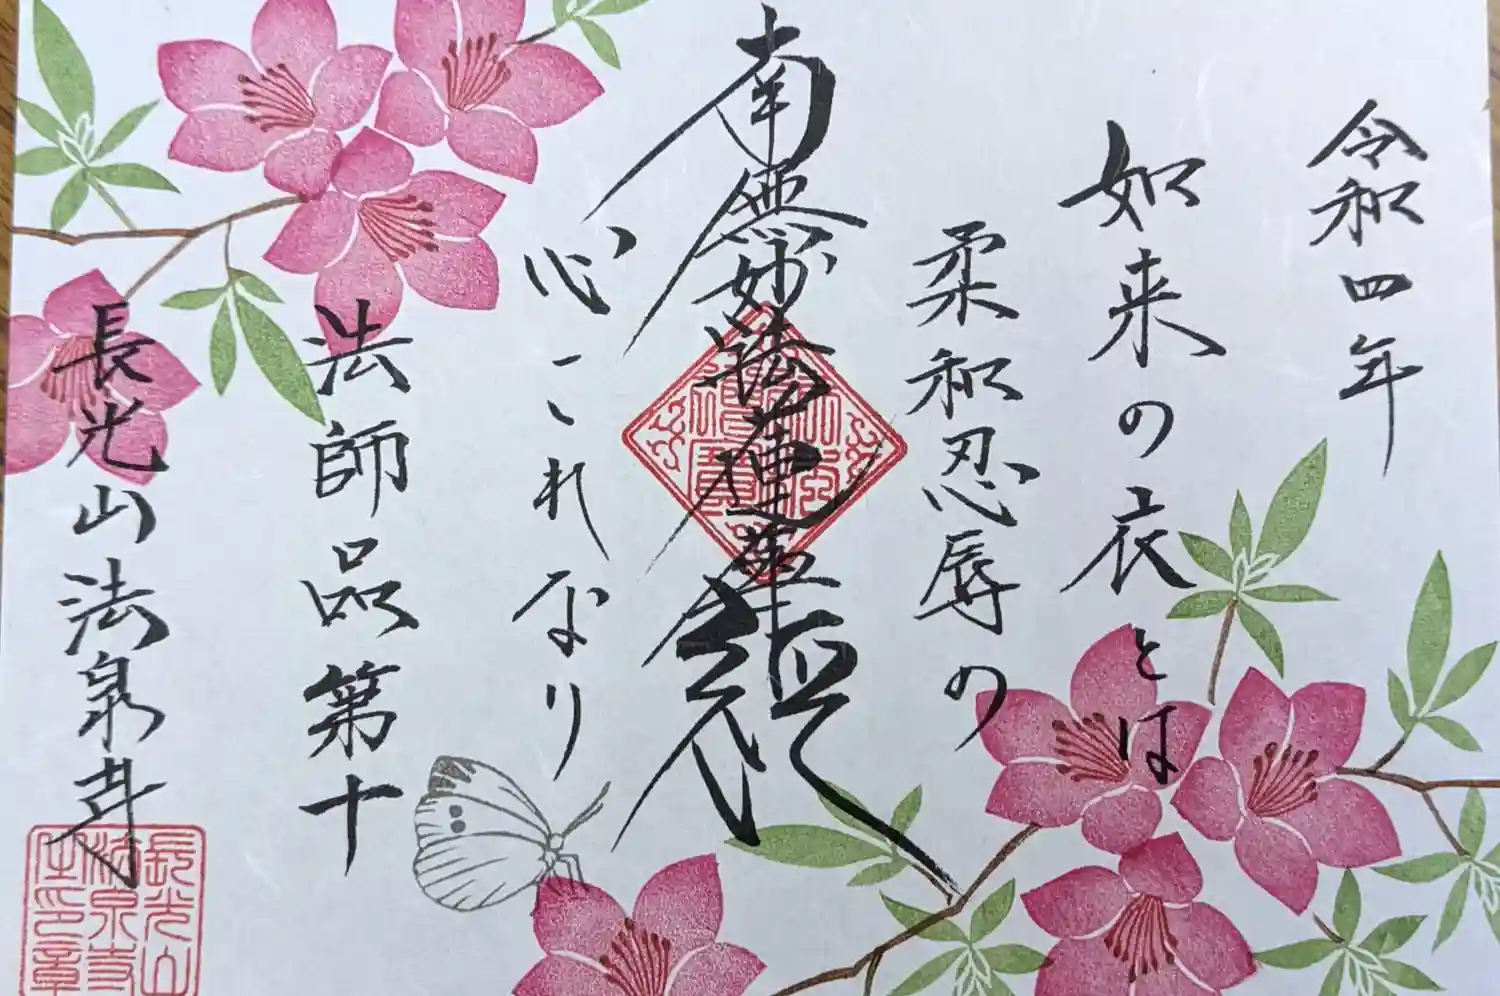 令和四年
如来の衣とは
柔和忍辱の
南無妙法蓮華経
心これなり
法師品第十
長光山法泉寺
長光山
法泉寺
之印章